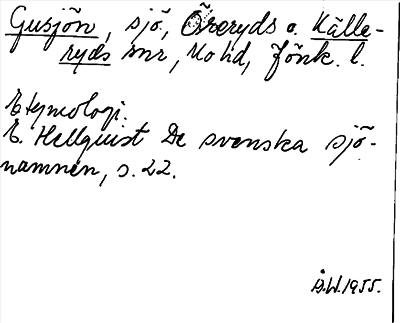 Gusjön, sjö, Öreryds o. Källe-
ryds snr, Mo hd, Jönk. l.
Etymologi.
E. Hellquist De svenska sjö-
namnen, s. 22.
Å.W. 1955.